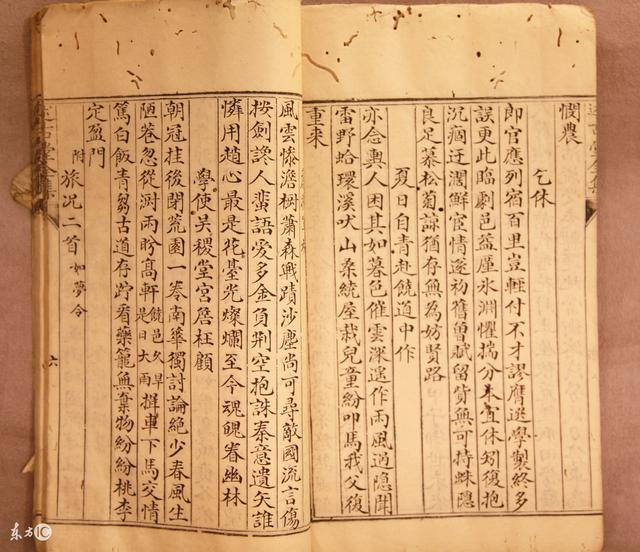 憫農
乞休
郎官應列宿百里豈輕付不才謬膺選學製終多
誤更此臨劇邑益厪氷淵懼揣分本宜休矧復抱
沉痼迂濶鮮宦情遂初舊曾賦留貲無可持蛛隱
良足慕松菊諒猶存無為妨賢路
夏日自青赴饒道中作
亦念輿人困其如暮色催雲深遙作雨風過隱聞
雷野蛤環溪吠山桑繞屋栽兒童紛叩馬我父復
重來
風雲慘澹樹蕭森戰蹟沙塵尚可尋敵國流言傷
按劍讒人蜚語愛多金負荆空抱誅秦意遺矢誰
憐用趙心最是花臺光燦爛至今魂魄眷幽林
學使吴稷堂宮詹枉顧
朝冠挂後閉荒園一卷南華獨討論絶少春風生
陋巷忽從澍雨盻髙軒饒邑久旱是日大雨擁車下馬交情
篤白飯青芻古道存跨看藥籠無棄物紛紛桃李
定盈門
附旅况二首如夢令
六
东方IC